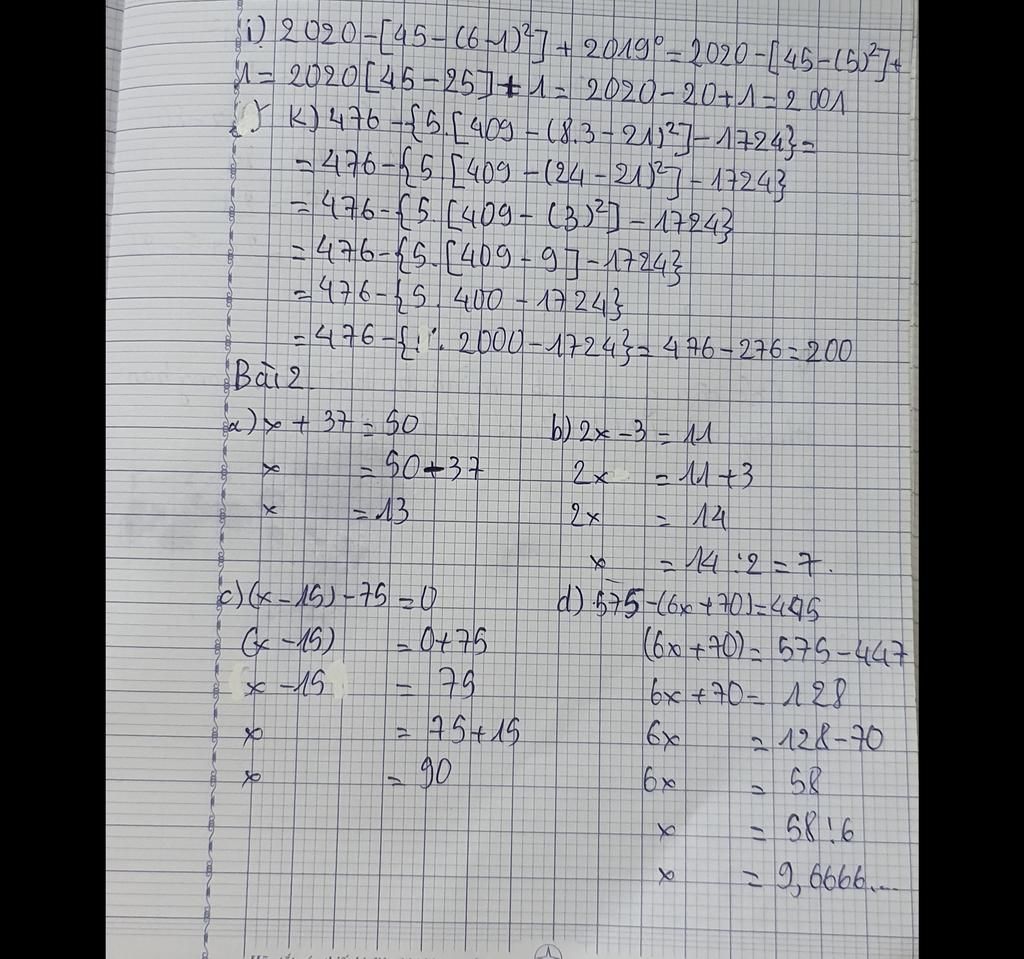 i) 2020-[45-(6-1)²]+2019⁰=2020-[45-(5)²]+
1=2020[45-25]+1=2020-20+1=2001
K) 476-{5.[409-(8.3-21)²]-1724}=
=476-{5.[409-(24-21)²]-1724}
=476-{5.[409-(3)²]-1724}
=476-{5.[409-9]-1724}
=476-{5.400-1724}
=476-{2000-1724}=476-276=200
Bài 2
a) x+37=50
x =50-37
x =13
b) 2x-3=11
2x =11+3
2x =14
x =14:2=7.
c) (x-15)-75=0
(x-15) =0+75
x-15 =75
x =75+15
x =90
d) 575-(6x+70)=445
(6x+70)=575-447
6x+70=128
6x =128-70
6x =58
x =58:6
x =9,6666...